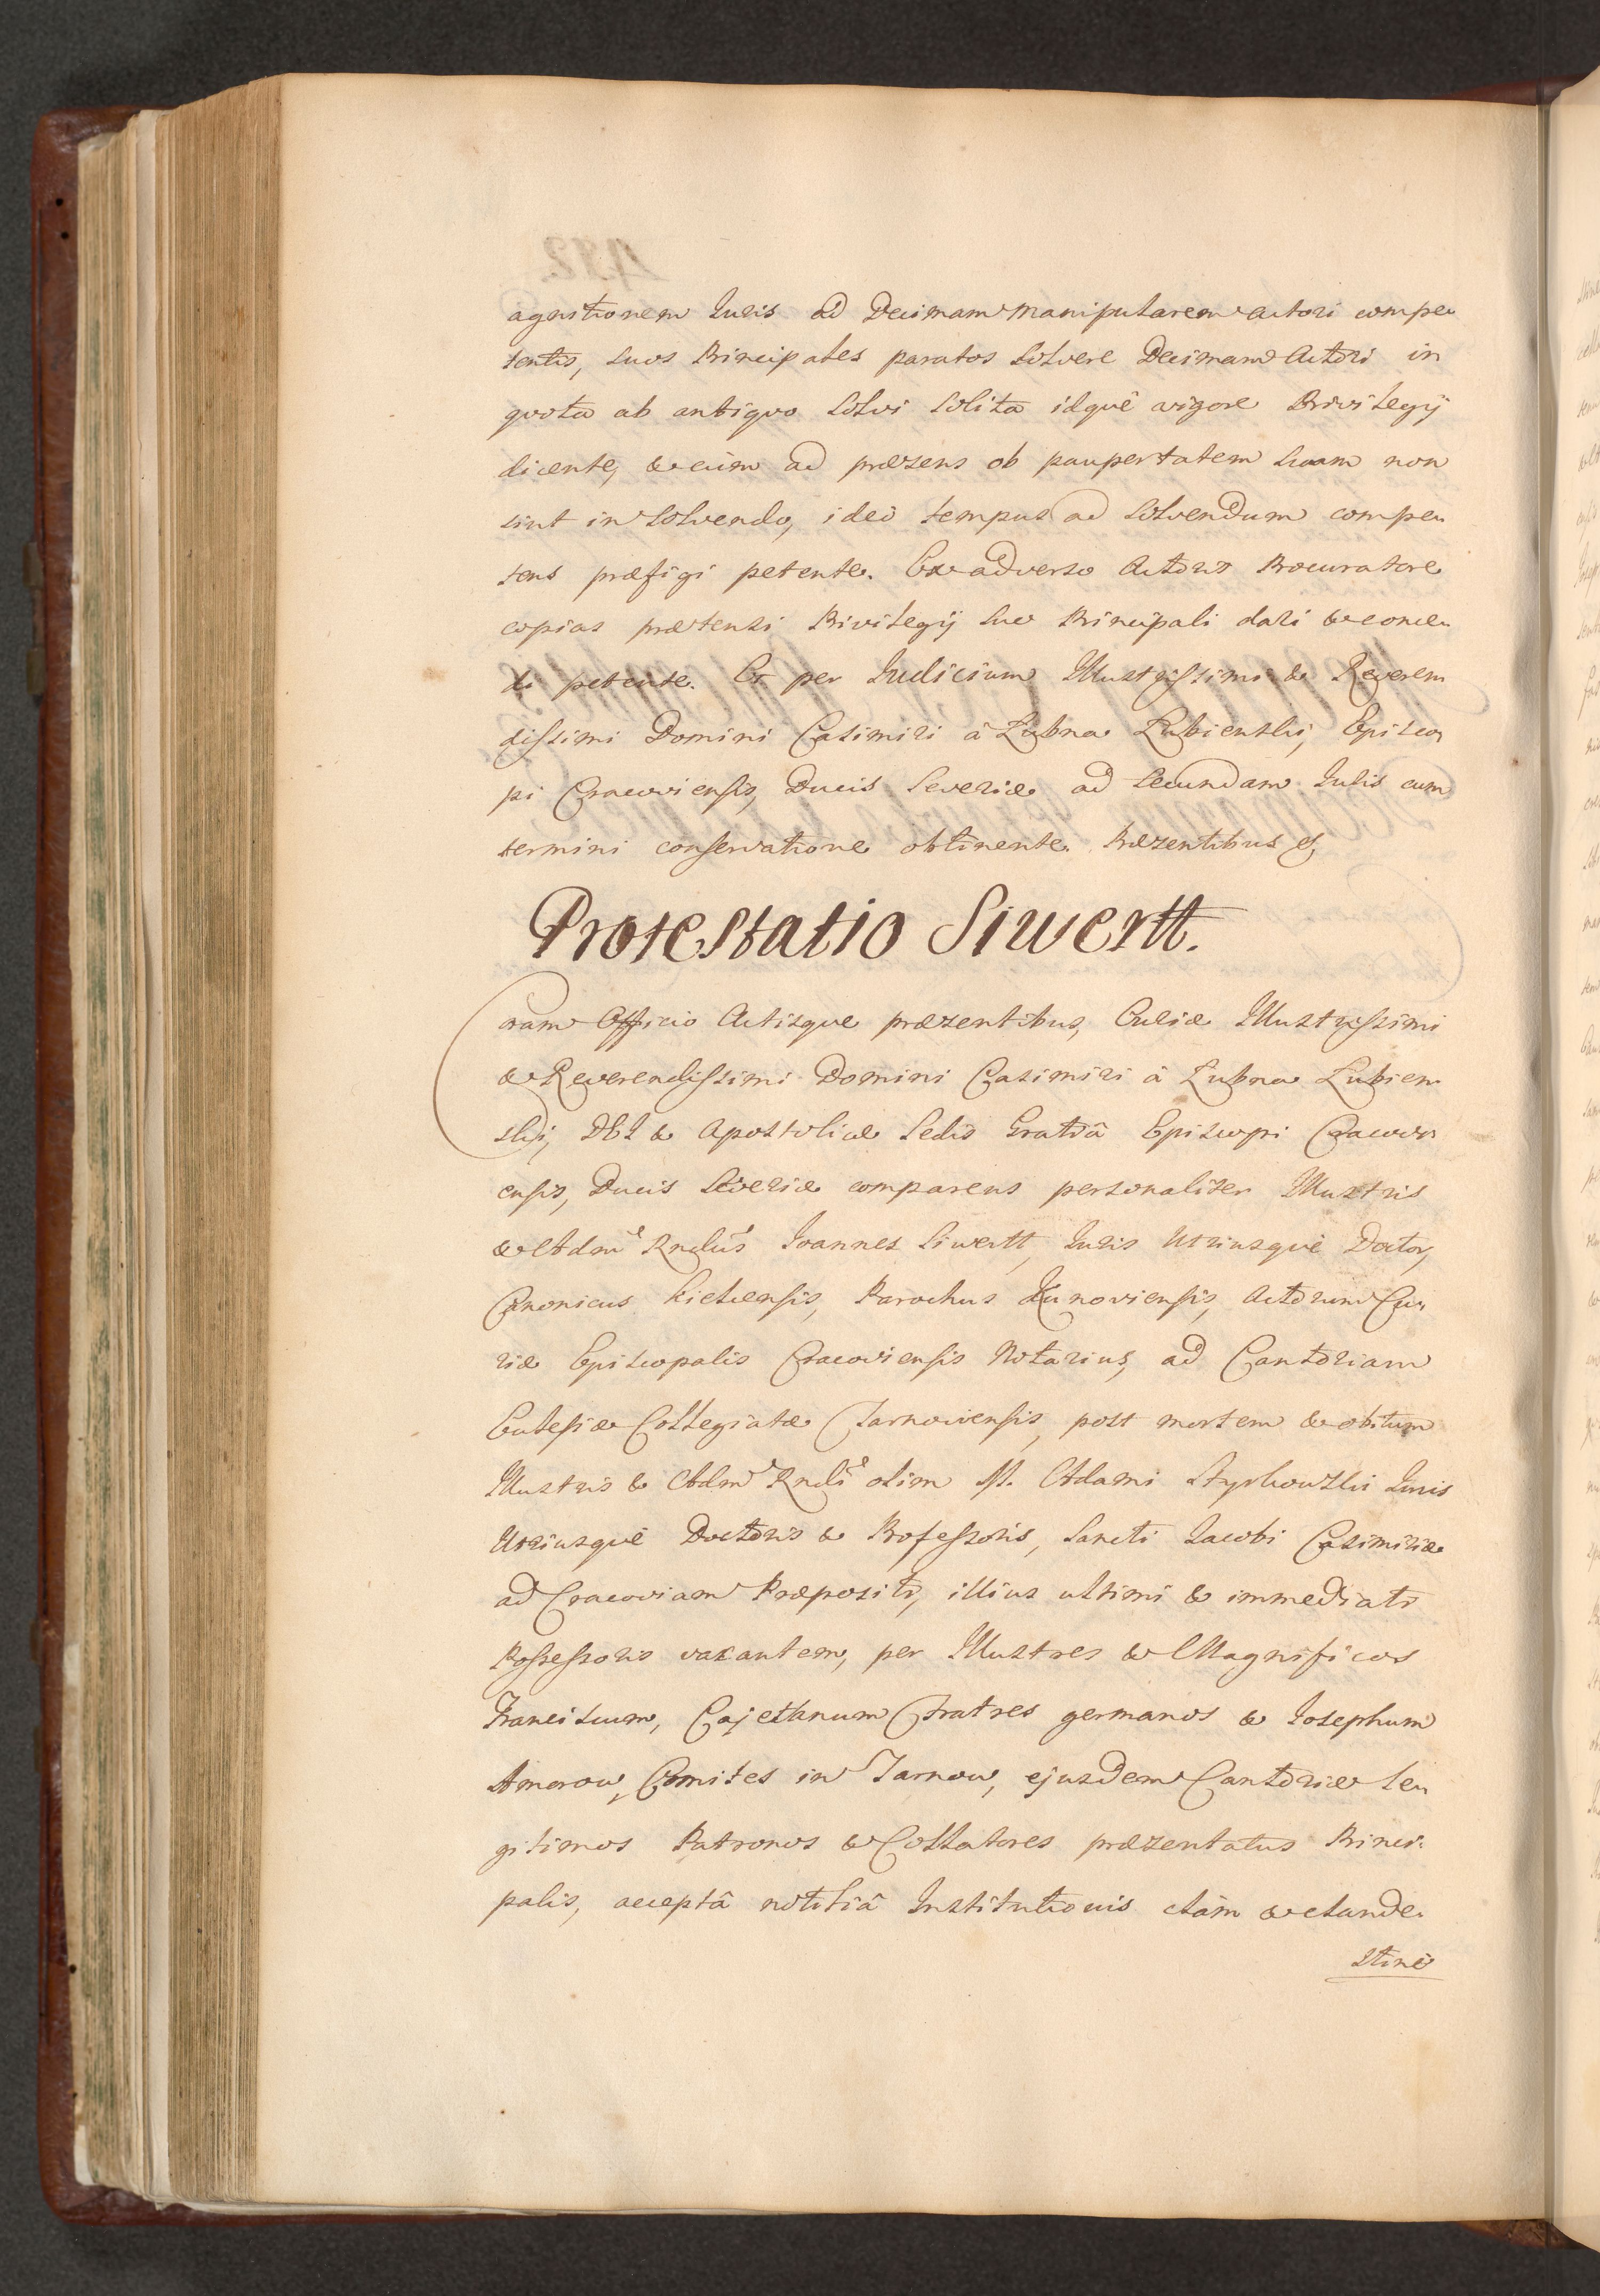 agnitionem Iuris ad Decimam Manipularem Actori compe-
tentis, suos Principales paratos solvere Decimam Actori in
quota ab antiquo solvi solita idquè vigore Privilegij
dicente, & cùm ad præsens ob paupertatem suam non
sint in solvendo, ideò tempus ad solvendum compe-
tens præfigi petente. Ex adverso Actoris Procuratore
copias prætensi Privilegij suo Principali dari & conce-
di petente. Et per Iudicium Illustrissimi & Reveren-
dissimi Domini Casimiri à Łubna Łubienski, Episco-
pi Cracoviensis, Ducis Severiæ ad secundam Iuris cum
termini conservatione obtinente. Præsentibus &.
Protestatio Siwertt.
Coram Officio Actisque præsentibus, Curiæ Illustrissimi
& Reverendissimi Domini Casimiri à Łubna Łubien-
ski, DEI & Apostolicæ Sedis Gratiâ Episcopi Cracovi-
ensis, Ducis Severiæ comparens personaliter Illustris
& Admd Rndus Ioannes Siwertt, Iuris Utriusquè Doctor,
Canonicus Kielcensis, Parochus Kunoviensis, Actorum Cu-
riæ Episcopalis Cracoviensis Notarius, ad Cantoriam
Ecclesiæ Collegiatæ Tarnoviensis, post mortem & obitum
Illustris & Admd Rndi olim M. Adami Stryhowski Iuris
Utriusquè Doctoris & Professoris, Sancti Iacobi Casimiriæ
ad Cracoviam Præpositi, illius ultimi & immediati
Possessoris vacantem, per Illustres & Magnificos
Franciscum, Cajethanum Fratres germanos & Iosephum
Amorow, Comites in Tarnow, ejusdem Cantoriæ le-
gitimos Patronos & Collatores præsentatus Princi-
palis, acceptâ notitiâ Institutionis clàm & clande-
stinè